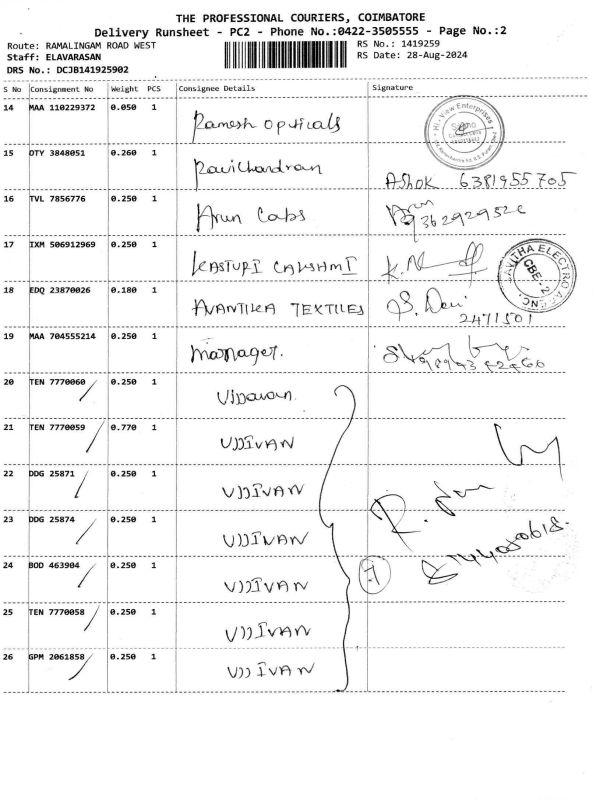 THE PROFESSIONAL COURIERS, COIMBATORE
Delivery Runsheet - PC2 - Phone No.:0422-3505555 - Page No.:2
Route: RAMALINGAM ROAD WEST
RS No.: 1419259
Staff: ELAVARASAN
RS Date: 28-Aug-2024
DRS No.: DCJB141925902
S No Consignment No Weight PCS Consignee Details Signature
14 MAA 110229372 0.050 1 Ramesh opticals Hi-View Enterprises
15 OTY 3848051 0.260 1 Ravichandran Ashok 6381955705
16 TVL 7856776 0.250 1 Arun Cabs
17 IXM 506912969 0.250 1 KASTURI LAKSHMI
18 EDQ 23870026 0.180 1 AVANTIKA TEXTILES 2471501
CBE-2
19 MAA 704555214 0.250 1 manager.
20 TEN 7770060 0.250 1
21 TEN 7770059 0.770 1 UJJIVAN
22 DDG 25871 0.250 1 UJJIVAN
23 DDG 25874 0.250 1 UJJIVAN
24 BOD 463904 0.250 1 UJJIVAN
25 TEN 7770058 0.250 1 UJJIVAN
26 GPM 2061858 0.250 1 UJJIVAN